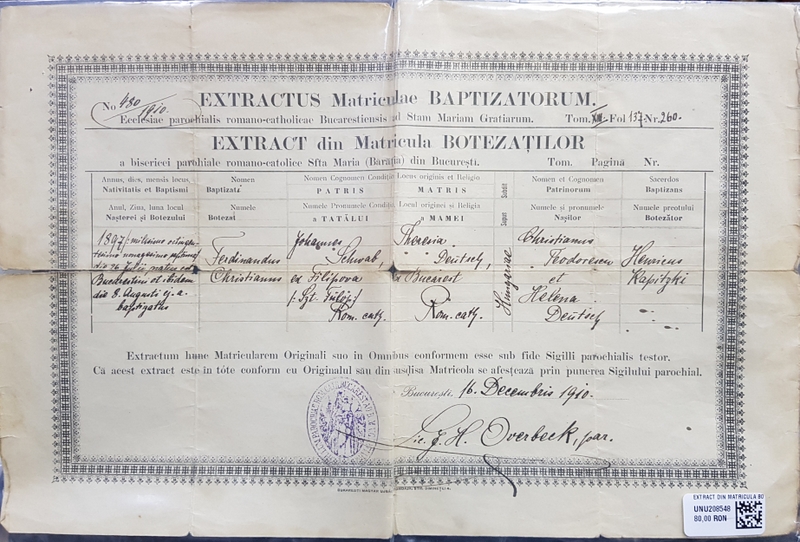 No 480/1910. EXTRACTUS Matriculae BAPTIZATORUM.
Ecclesiae parochialis romano-catholicae Bucarestiensis ad Stam Mariam Gratiarum. Tom. XIII Fol 137 Nr. 260.
EXTRACT din Matricula BOTEZAȚILOR
a bisericei parohiale romano-catolice Sfta Maria (Barația) din București. Tom. Pagina Nr.
Annus, dies, mensis locus, Nativitatis et Baptismi
Nomen Baptizata
Nomen Cognomen Conditio Locus originis et Religio
PATRIS MATRIS
Subdit
Nomen et Cognomen Patrinorum
Sacerdos Baptizans
Anul, Ziua, luna locul Nașterei și Botezului
Numele Botezat
Numele Pronumele Condiție, Local originei și Religia
a TATĂLUI a MAMEI
Supus
Numele și pronumele Nașilor
Numele preotului Botezător
1897
die 26 Julii natus est
Bucarestini et ibidem
die 8. Augusti ej. a.
baptizatus
Ferdinandus
Christianus
Johannes
Schwab,
ex Filipova
Rom. cath.
Theresia
Deutsch,
ex Bucarest
Rom. cath.
Hungariae
Christianus
Teodorescu
et
Helena
Deutsch
Henricus
Kapitzki
Extractum hunc Matricularem Originali suo in Omnibus conformem esse sub fide Sigilli parochialis testor.
Că acest extract este în tóte conform cu Originalul său din susḑisa Matricola se afestează prin punerea Sigilului parochial.
București. 16 Decembris 1910.
Lic. J. H. Overbeck, par.
EXTRACT DIN MATRICULA BO
UNU208548
80,00 RON